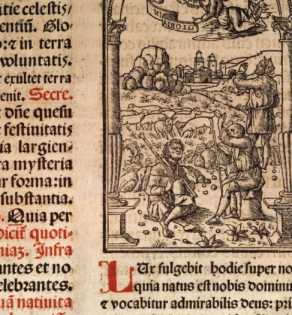 ntie celesti⸗
entiũ. Glo⸗
o: ⁊ in terra
voluntatis.
exultet terra
enit. Secre.
dñe quesu
festinitatis
ia largien⸗
ra mysteria
ur forma: in
substantia.
Quia per
dicit quoti⸗
niaz. Infra
antes et no
elebrantes.
nativita
LUx fulgebit hodie super no
quia natus est nobis dominu
⁊ vocabitur admirabilis deus: pri